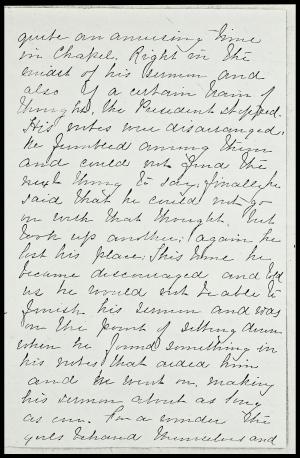 quite an amusing time
in Chapel. Right in the
midst of his sermon and
also of a certain train of
thought, the President stopped.
His notes were disarranged,
he fumbled among them
and could not find the
next thing to say; finally he
said that he could not go
on with that thought but
took up another; again he
lost his place. This time he
became discouraged and told
us he would not be able to
finish his sermon and was
on the point of sitting down
when he found something in
his notes that aided him
and he went on, making
his sermon about as long
as ever. For a wonder the
girls behaved themselves and